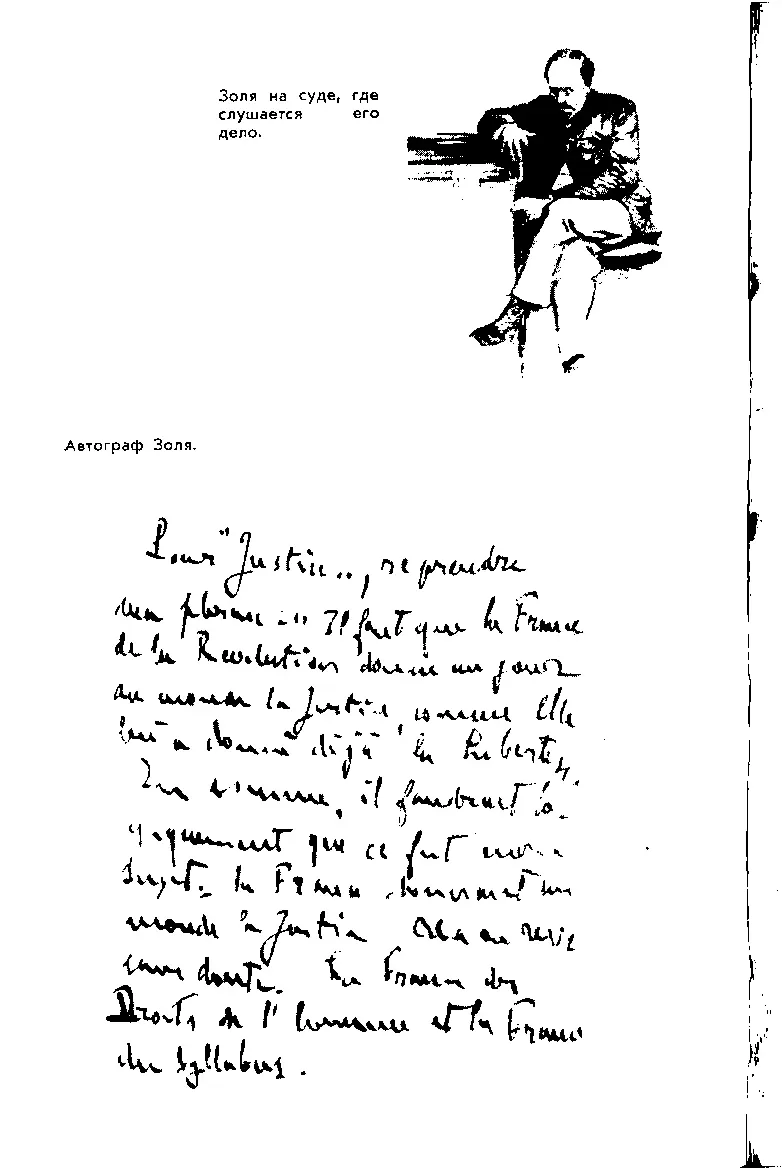 Золя на суде, где
слушается его
дело.
Автограф Золя.
Pour "Justice", reprendre
ma phrase : "Il faut que la France
de la Révolution donne un jour
au monde la Justice, comme Elle
lui a donné déjà la Liberté".
En somme, il faudrait lo-
giquement que ce fut mon
Sujet. la France donnant au
monde la Justice
sans doute. La France des
Droits de l'homme et la France
du Syllabus.